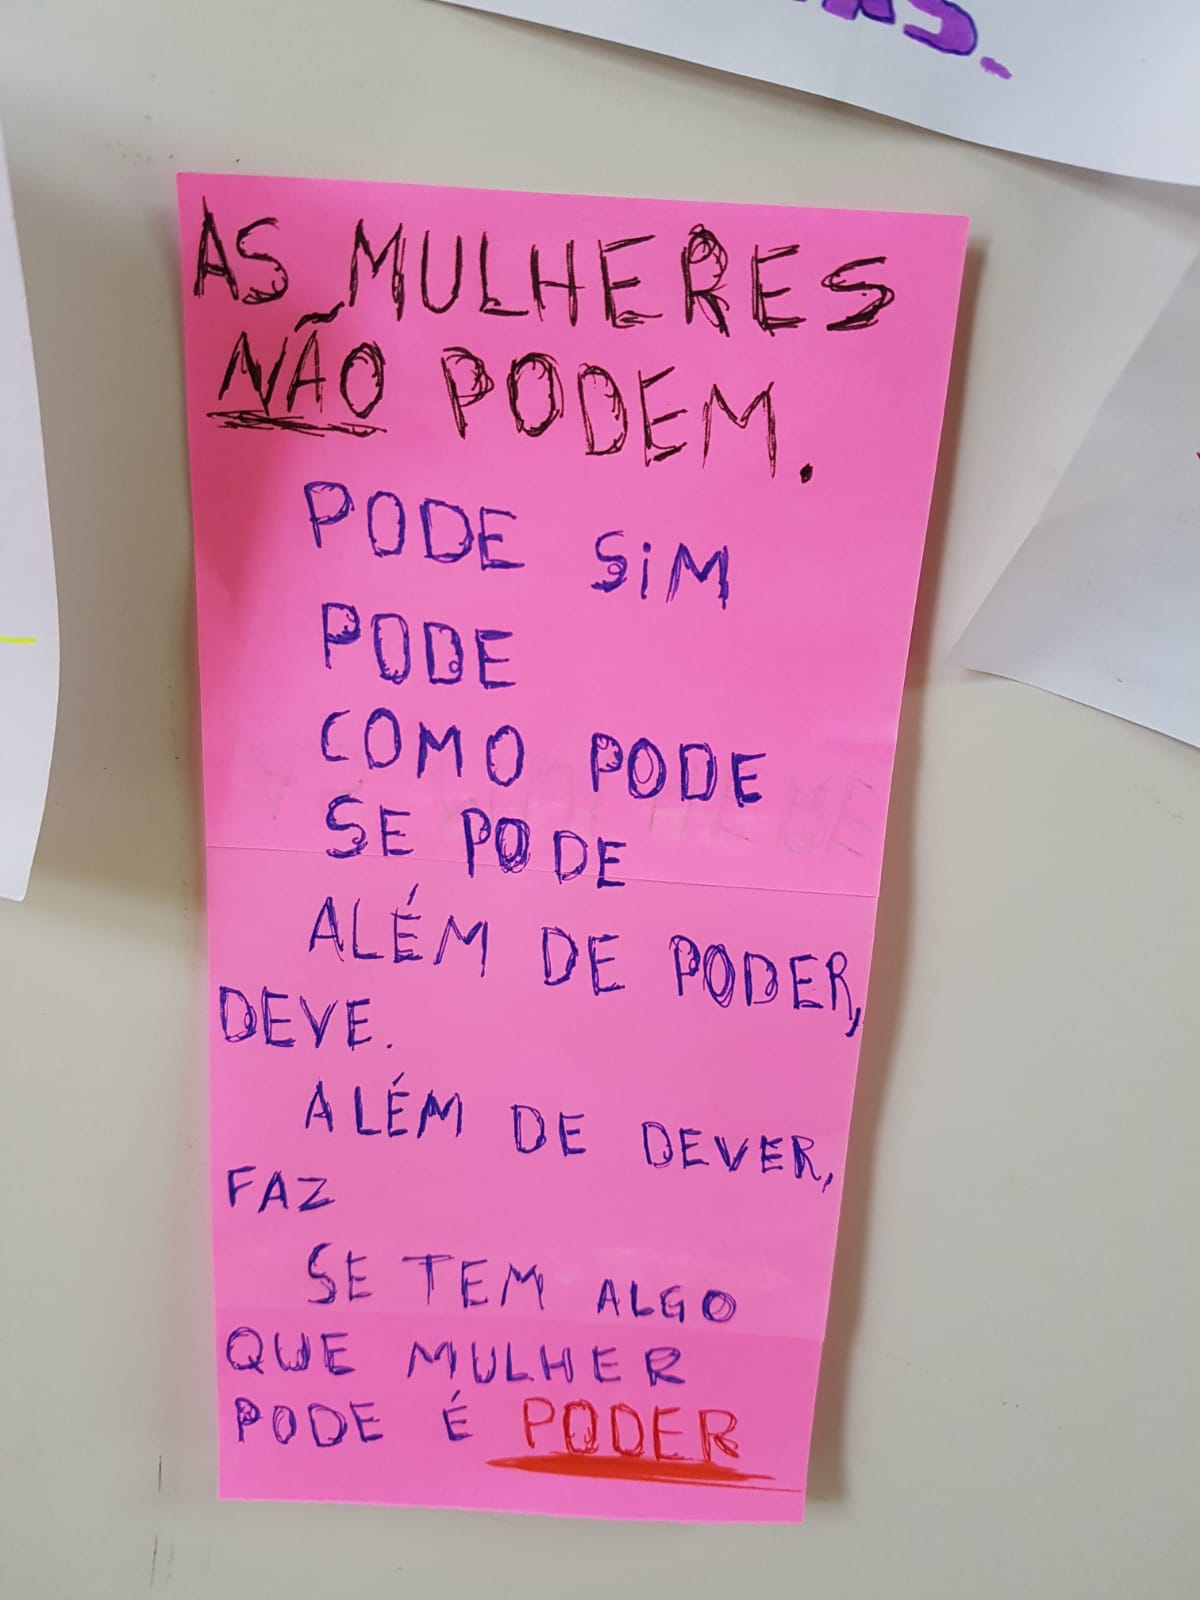 AS MULHERES
NÃO PODEM.
PODE SiM
PODE
COMO PODE
SE PODE
ALÉM DE PODER,
DEVE.
ALÉM DE DEVER,
FAZ
SE TEM ALGO
QUE MULHER
PODE É PODER